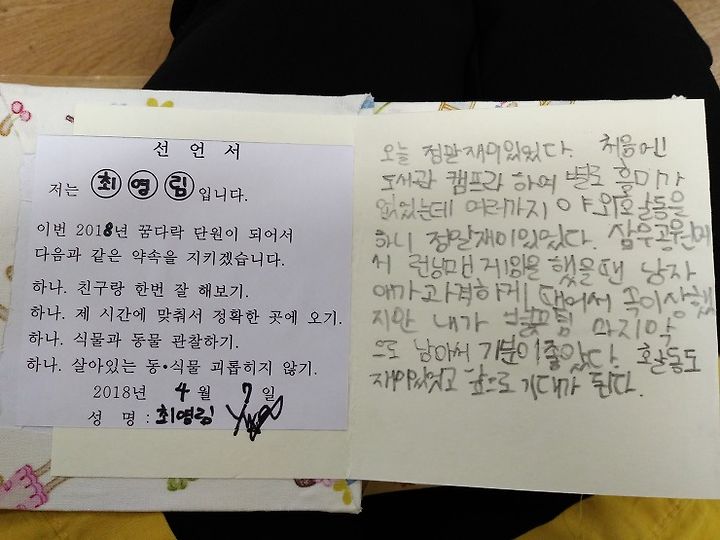 선 언 서
저는 최 영 림 입니다.
이번 2018년 꿈다락 단원이 되어서
다음과 같은 약속을 지키겠습니다.
하나. 친구랑 한번 잘 해보기.
하나. 제 시간에 맞춰서 정확한 곳에 오기.
하나. 식물과 동물 관찰하기.
하나. 살아있는 동•식물 괴롭히지 않기.
2018년 4 월 7 일
성 명 : 최영림
오늘 정말 재미있었다. 처음엔
도서관 캠프라 하여 별로 흥미가
없었는데 여러가지 야외활동을
하니 정말 재미있었다. 삼무공원에
서 런닝맨 게임을 했을땐 남자
애가 과격하게 떼어서 속이 상했
지만 내가 마지막
으로 남아서 기분이 좋았다. 활동도
재미있었고 앞으로 기대가 된다.